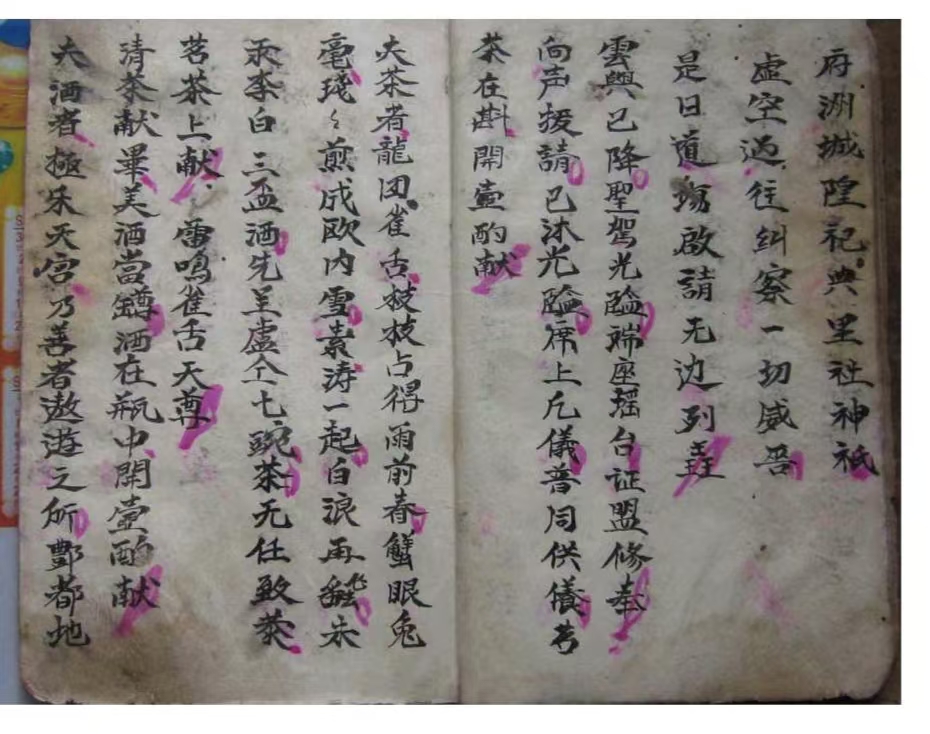 府洲城隍祀典里社神祇
虚空过往纠察一切威
是日道塲啟請无边列
雲輿已降聖駕光臨端座瑶台证盟修奉
向声援請已沐光臨席上凢儀普同供養茗
茶在斟開壶酌献
夫茶者龍团雀舌枝枝占得雨前春蟹眼兔
毫琖々煎成欧内雪素涛一起白浪再翻未
汞李白三盃洒先羊盧仝七豌茶无任敏
茗茶上献雷鳴雀舌天尊
清茶献畢美酒當罇酒在瓶中開壶酌献
夫酒者極乐天宫乃善者遨遊之所酆都地